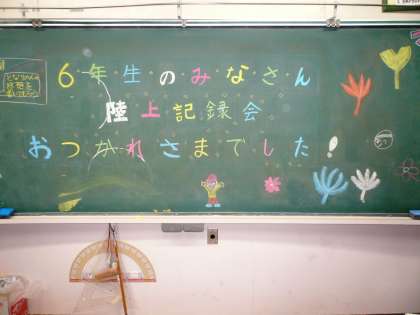 6年生のみなさん
陸上記録会
おつかれさまでした!